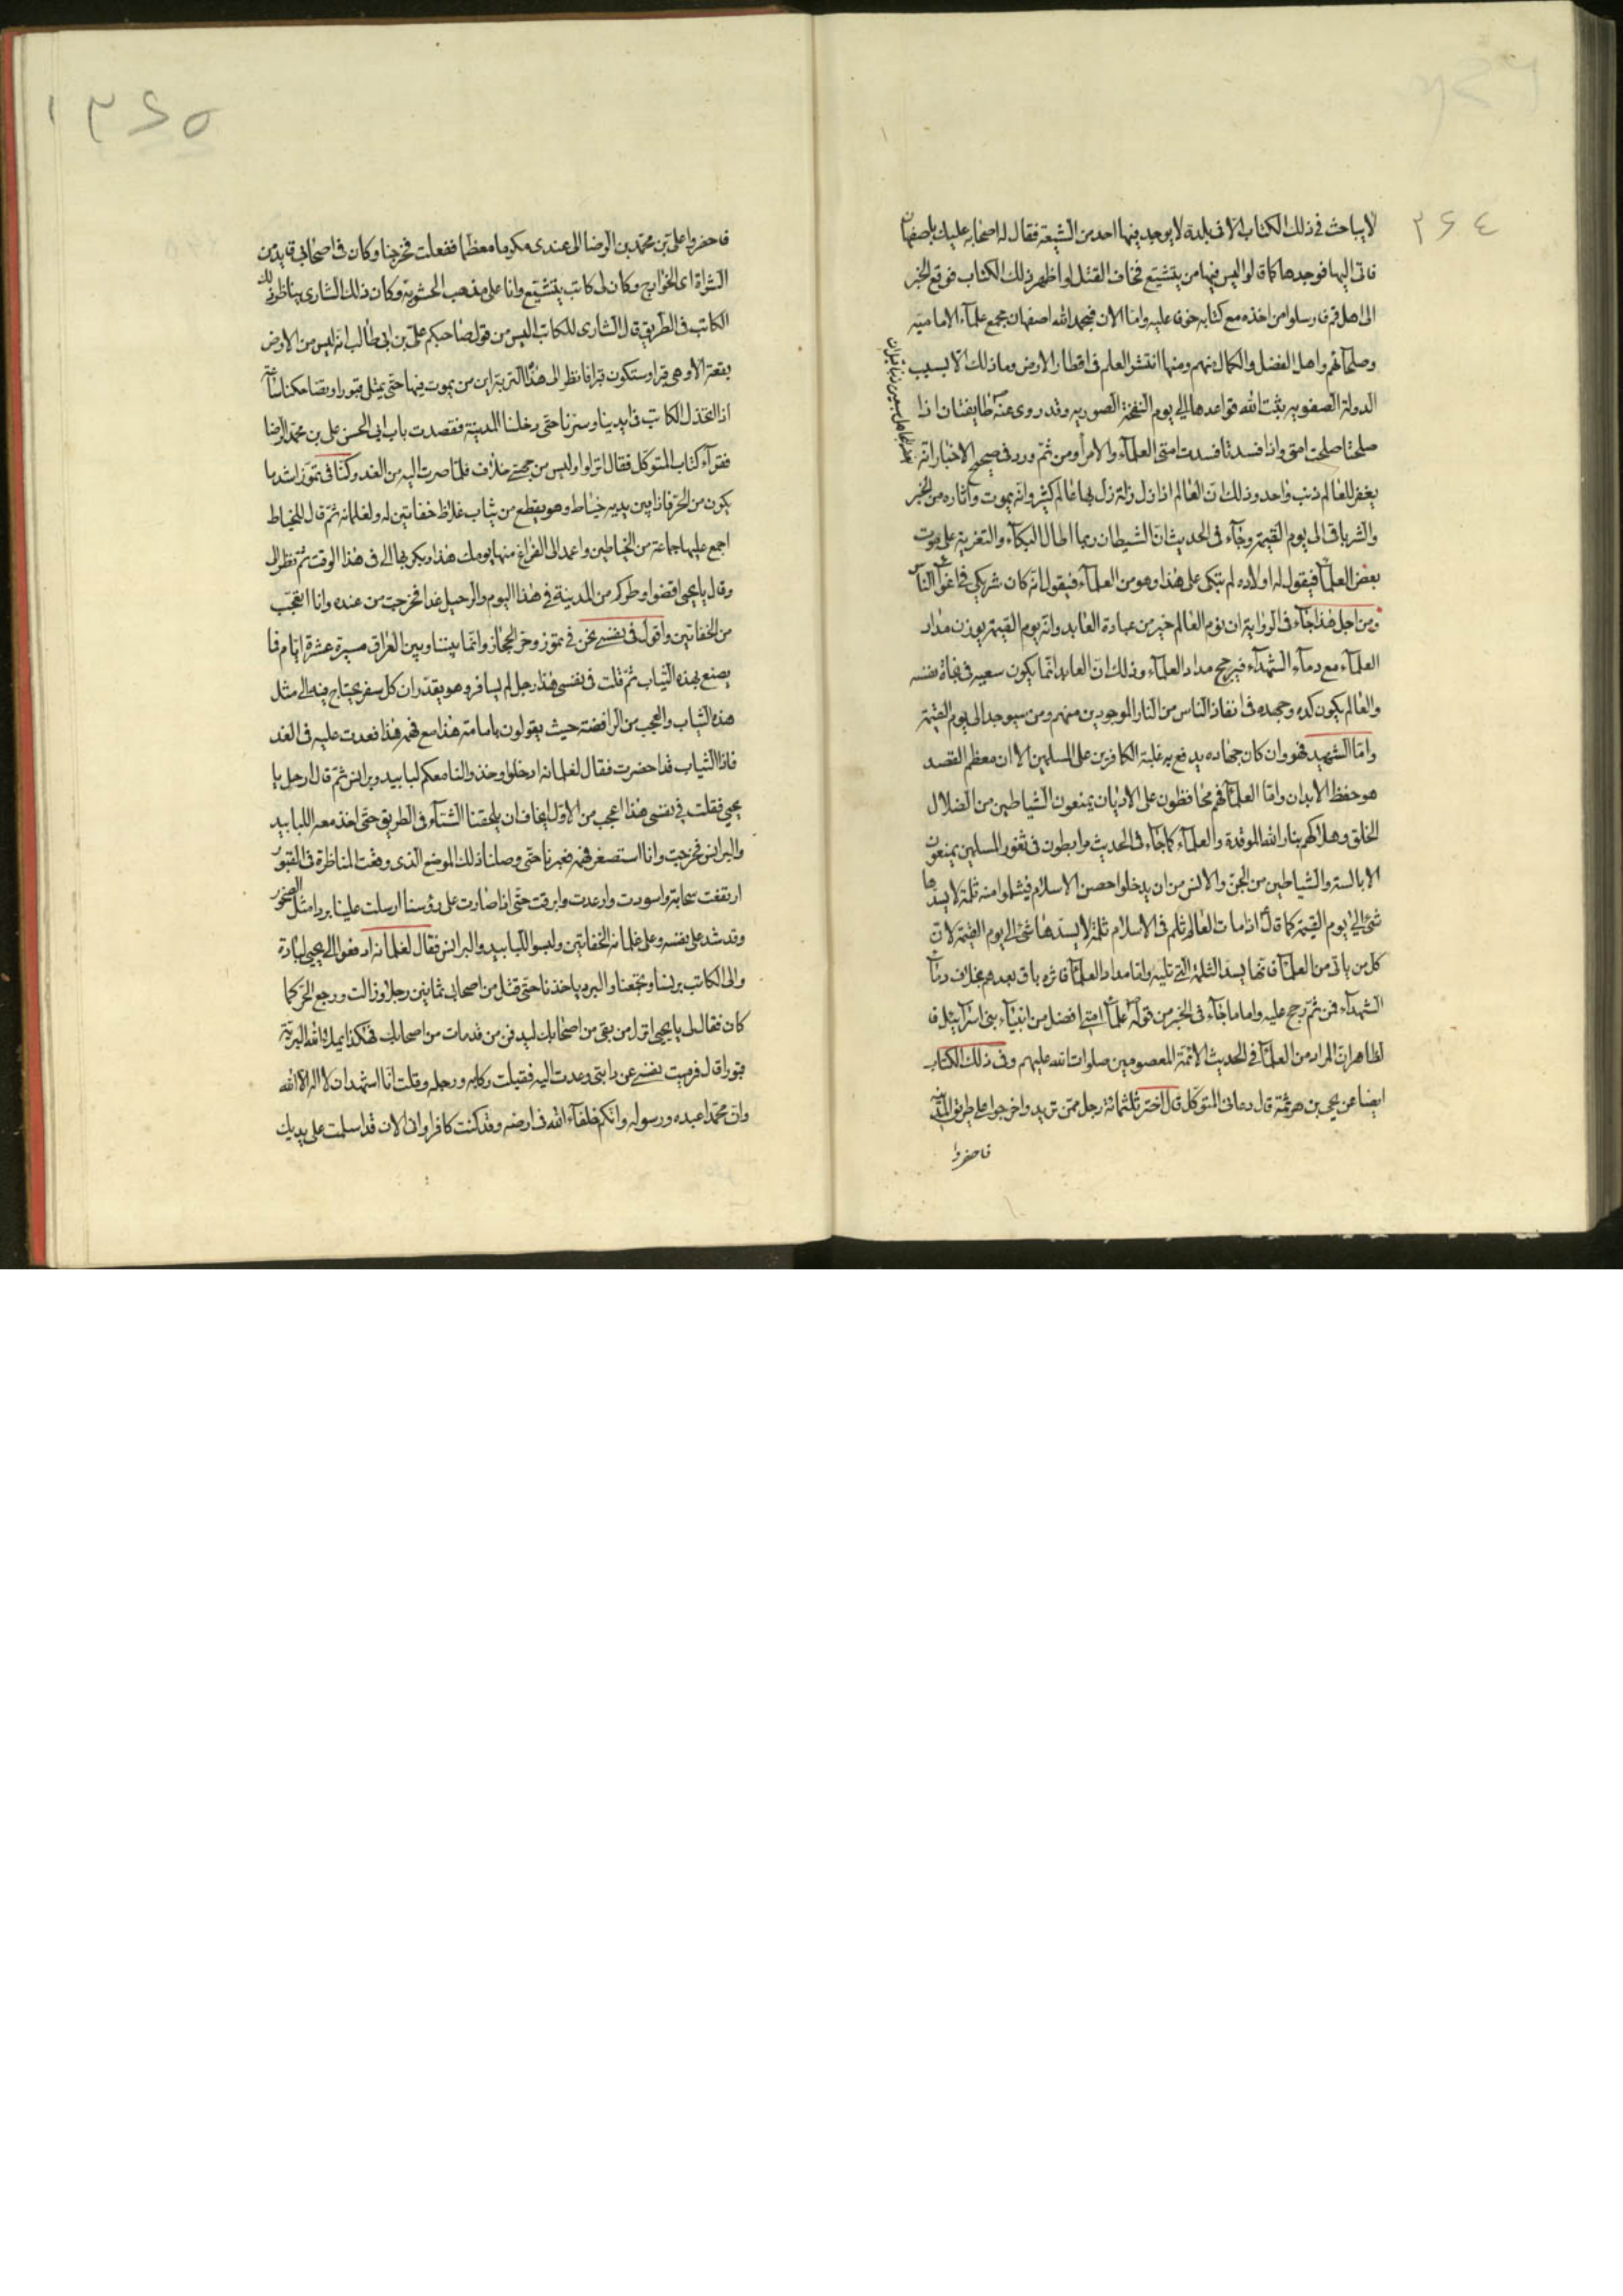 ٣٦٤
لا يباحث في ذلك الكتاب الا في بلدة لا يوجد فيها احد من الشيعة فقال له اصحابه عليك باصفهان
فاتى اليها فوجدها كما قالوا ليس فيها من يتشيع فخاف القتل لو اظهر ذلك الكتاب فوقع الخبر
الى اهل قم فارسلوا من اخذه مع كتابه خوفا عليه واما الان فبحمد الله اصفهان مجمع علمآء الامامية
وصلحآئهم واهل الفضل والكمال منهم ومنها انتشر العلم في اقطار الارض وما ذلك الا بسبب
الدولة الصفوية ثبت الله قواعدها الى يوم النفخة الصورية وقد روى عنه ص طايفتان اذا
صلحتا صلحت امتي واذا فسدتا فسدت امتي العلمآء والامرآء ومن ثم ورد في صحيح الاخبار انه
يغفر للجاهل سبعين ذنبا قبل ان
يغفر للعالم ذنب واحد وذلك ان العالم اذا زل زلة زل بها عالم كثير وانه يموت وآثاره من الخير
والشر باق الى يوم القيمة وجآء في الحديث ان الشيطان ربما اطال البكآء والتعزية على موت
بعض العلمآء فيقول له اولاده لم تبكى على هذا وهو من العلمآء فيقول انه كان شريكي في اغوآء الناس
ومن اجل هذا جآء في الرواية ان نوم العالم خير من عبادة العابد وانه يوم القيمة يوزن مداد
العلمآء مع دمآء الشهدآء فيرجح مداد العلمآء وذلك ان العابد انما يكون سعيه في نجاة نفسه
والعالم يكون كده وجهده في انقاذ الناس من النار الموجودين منهم ومن سيوجد الى يوم القيمة
واما الشهيد فهو وان كان جهاده يدفع به غلبة الكافرين على المسلمين الا ان معظم القصد
هو حفظ الابدان واما العلمآء فهم محافظون على الاديان يمنعون الشياطين من اضلال
الخلق وهلاكهم بنار الله الموقدة والعلمآء كما جآء في الحديث مرابطون في ثغور المسلمين يمنعون
الابالسة والشياطين من الجن والانس من ان يدخلوا حصن الاسلام فيثلموا منه ثلمة لا يسدها
شئ الى يوم القيمة كما قال اذا مات العالم ثلم في الاسلام ثلمة لا يسدها شئ الى يوم القيمة لان
كل من ياتي من العلمآء فانما يسد الثلمة التي تليه واما مداد العلمآء فاثره باق بعدهم بخلاف دمآء
الشهدآء فمن ثم رجح عليه واما ما جآء في الخبر من قوله علمآء امتي افضل من انبيآء بني اسرائيل فا
لظاهر ان المراد من العلمآء في الحديث الائمة المعصومين صلوات الله عليهم وفي ذلك الكتاب
ايضا عن يحيى بن هرثمة قال دعاني المتوكل قال اختر ثلثمائة رجل ممن تريد واخرجوا على طريق المدينة
فاحضروا
١٣٦٥
فاحضروا علي بن محمد بن الرضا الى عندي مكرما معظما ففعلت فخرجنا وكان في اصحابي قايد من
الشراة اي الخوارج وكان لي كاتب يتشيع وانا على مذهب الحشوية وكان ذلك الشاري يناظر ذلك
الكاتب في الطريق قال الشاري للكاتب اليس من قول صاحبكم علي بن ابي طالب انه ليس من الارض
بقعة الا وهي قبر او ستكون قبرا فانظر الى هذه التربة اين من يموت فيها حتى يمتلى قبورا وتضاحكنا ساعة
اذ انخذل الكاتب في ايدينا وسرنا حتى دخلنا المدينة فقصدت باب ابي الحسن علي بن محمد الرضا
فقرآء كتاب المتوكل فقال انزلوا وليس من جهتي خلاف فلما صرت اليه من الغد وكنا في تموز اشد ما
يكون من الحر فاذا بين يديه خياط وهو يقطع من ثياب غلاظ خفاتين له ولغلمانه ثم قال للخياط
اجمع عليها جماعة من الخياطين واعمد الى الفراغ منها يومك هذا وبكر بها الى في هذا الوقت ثم نظر الى
وقال يا يحيى اقضوا وطركم من المدينة في هذا اليوم والرحيل غدا فخرجت من عنده وانا اتعجب
من الخفاتين واقول في نفسي نحن في تموز وحر الحجاز وانما بيننا وبين العراق مسيرة عشرة ايام فما
يصنع بهذه الثياب ثم قلت في نفسي هذا رجل لم يسافر وهو يقدر ان كل سفر يحتاج فيه الى مثل
هذه الثياب والعجب من الرافضة حيث يقولون بامامة هذا مع فهمه هذا فعدت عليه في الغد
فاذا الثياب قد احضرت فقال لغلمانه ادخلوا وخذوا لنا معكم لبابيد وبرانس ثم قال ارحل يا
يحيى فقلت في نفسي هذا اعجب من الاول ايخاف ان يلحقنا الشتآء في الطريق حتى اخذ معه اللبابيد
والبرانس فخرجت وانا استصغر فهمه فعبرنا حتى وصلنا ذلك الموضع الذي وقعت المناظرة في القبور
ارتفعت سحابة واسودت وارعدت وابرقت حتى اذا صارت على رؤسنا ارسلت علينا بردا مثل الصخور
وقد شد على نفسه وعلى غلمانه الخفاتين ولبسوا اللبابيد والبرانس فقال لغلمانه ادفعوا الى يحيى لبادة
والى الكاتب برنسا وتجمعنا والبرد ياخذنا حتى قتل من اصحابي ثمانين رجلا وزالت ورجع الحر كما
كان فقال لي يا يحيى انزل من بقى من اصحابك ليدفن من قد مات من اصحابك فهكذا يملا الله البرية
قبورا قال فرميت نفسي عن دابتي وعدت اليه فقبلت ركابه ورجله وقلت انا اشهد ان لا اله الا الله
وان محمدا عبده ورسوله وانكم خلفآء الله في ارضه وقد كنت كافرا واني الان قد اسلمت على يديك